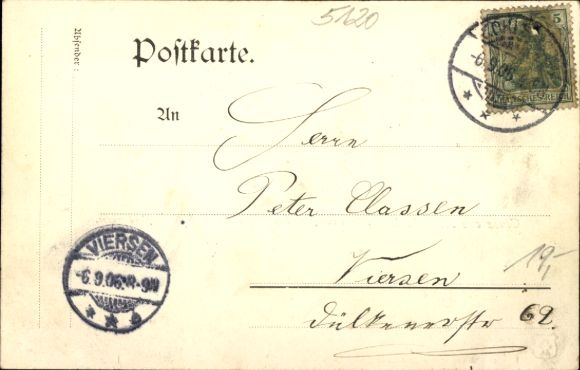 5120
Postkarte.
Absender:
5
DEUTSCHES REICH
-6.9.06
An
Herrn
Peter Classen
Viersen
Dülkenerstr 62.
19,-
VIERSEN
-6.9.06. 8-9N